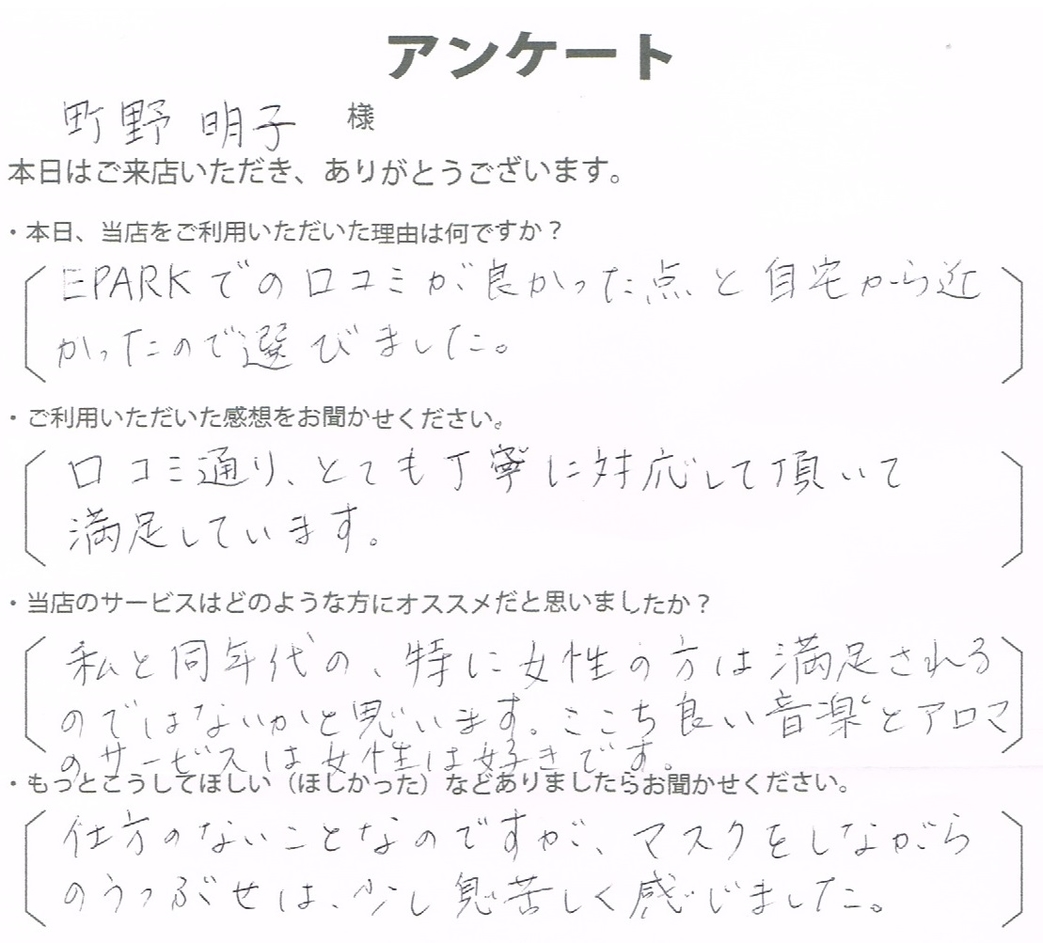 アンケート
町野 明子 様
本日はご来店いただき、ありがとうございます。
・本日、当店をご利用いただいた理由は何ですか？
EPARKでの口コミが良かった点と自宅から近
かったので選びました。
・ご利用いただいた感想をお聞かせください。
口コミ通り、とても丁寧に対応して頂いて
満足しています。
・当店のサービスはどのような方にオススメだと思いましたか？
私と同年代の、特に女性の方は満足される
のではないかと思います。ここち良い音楽とアロマ
のサービスは女性は好きです。
・もっとこうしてほしい（ほしかった）などありましたらお聞かせください。
仕方のないことなのですが、マスクをしながら
のうつぶせは、少し息苦しく感じました。